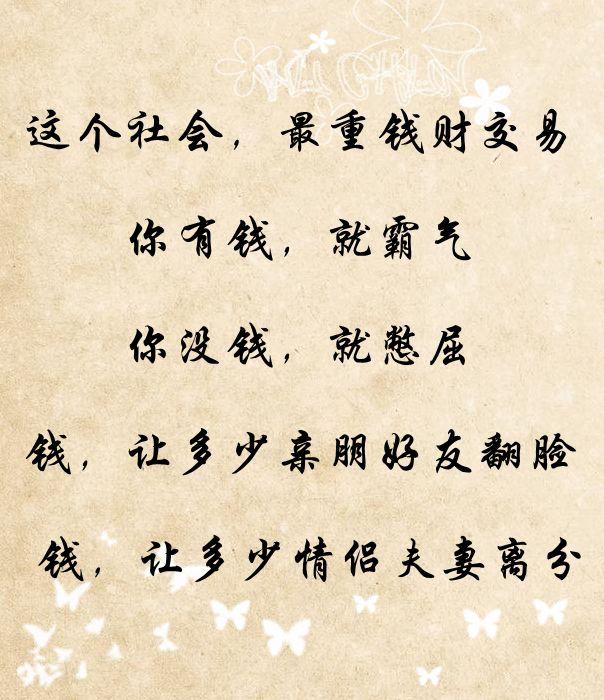 这个社会，最重钱财交易
你有钱，就霸气
你没钱，就憋屈
钱，让多少亲朋好友翻脸
钱，让多少情侣夫妻离分